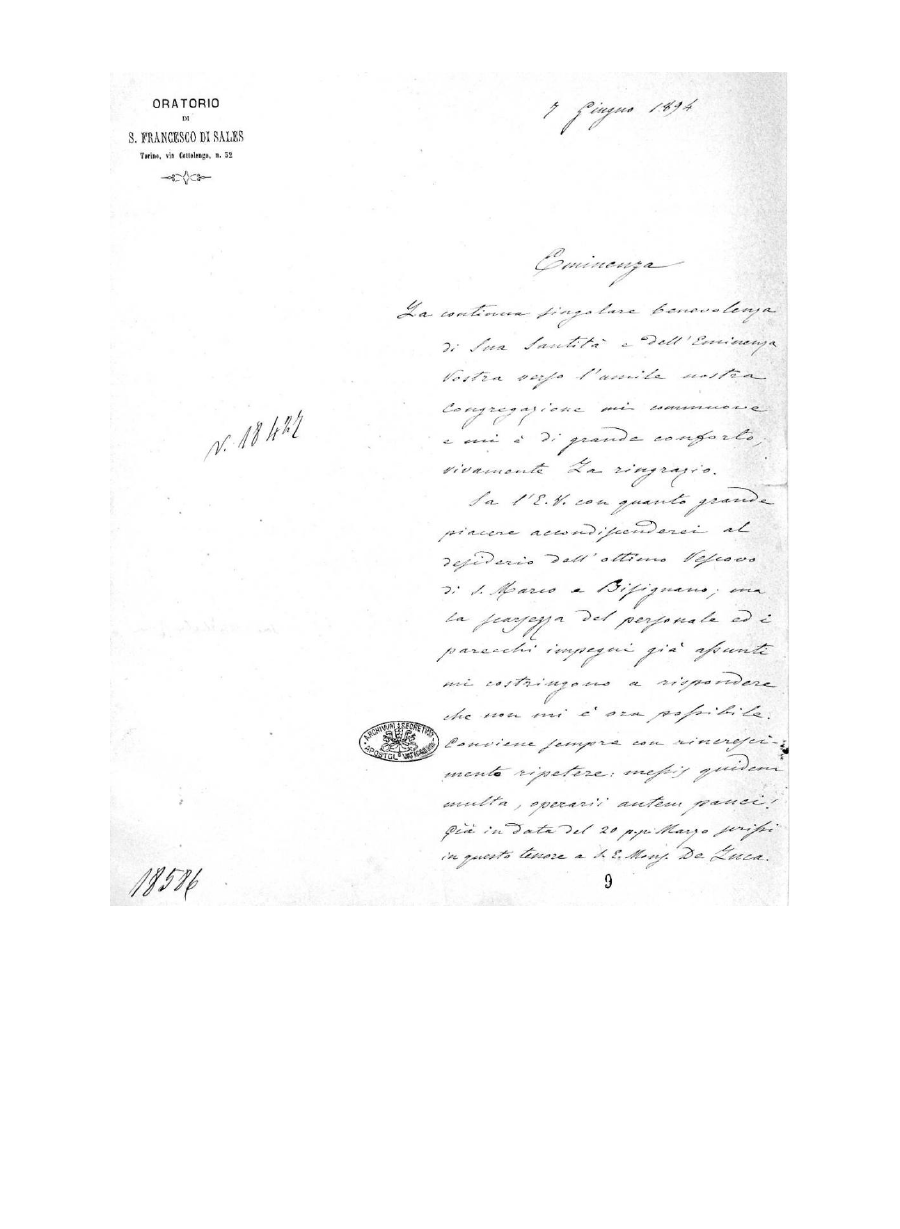 ORATORIO
DI
S. FRANCESCO DI SALES
Torino, via Cottolengo, n. 32
7 Giugno 1894
Eminenza
La continua singolare benevolenza
di Sua Santità e dell'Eminenza
Vostra verso l'umile nostra
Congregazione mi commuove
e mi è di grande conforto,
vivamente La ringrazio.
Sa l'E.V. con quanto grande
piacere accondiscenderei al
desiderio dell'ottimo Vescovo
di S. Marco e Bisignano; ma
la scarsezza del personale ed i
parecchi impegni già assunti
mi costringono a rispondere
che non mi è ora possibile.
Conviene sempre con rincresci-
mento ripetere: messis quidem
multa, operarii autem pauci!
Già in data del 20 p.p. Marzo scrissi
in questo tenore a S. E. Mons. De Luca.
N. 18427
ARCHIVUM SECRETUM
APOSTOL. VATICANUM
18586
9